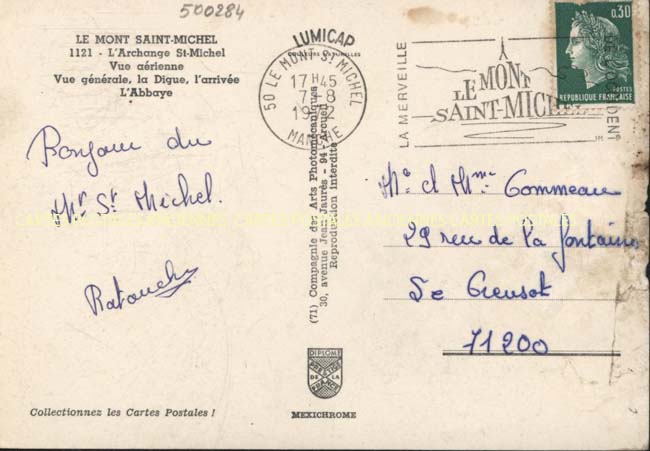 500284
LE MONT SAINT-MICHEL
1121 - L'Archange St-Michel
Vue aérienne
Vue générale, la Digue, l'arrivée
L'Abbaye
Bonjour du
Mt St Michel.
Collectionnez les Cartes Postales !
LUMICAP
COULEURS NATURELLES
(71) Compagnie des Arts Photomécaniques
30, avenue Jean-Jaurès - 94 - Arcueil
Reproduction Interdite
DIPLOME
PRESTIGE
DE LA
FRANCE
MEXICHROME
50 LE MONT ST MICHEL
17 H 45
7 - 8
MANCHE
LA MERVEILLE
LE MONT
SAINT-MICHEL
DE L'OCCIDENT
0,30
POSTES
REPUBLIQUE FRANÇAISE
Mr et Mme Commeau
29 rue de la fontaine
Le Creusot
71200